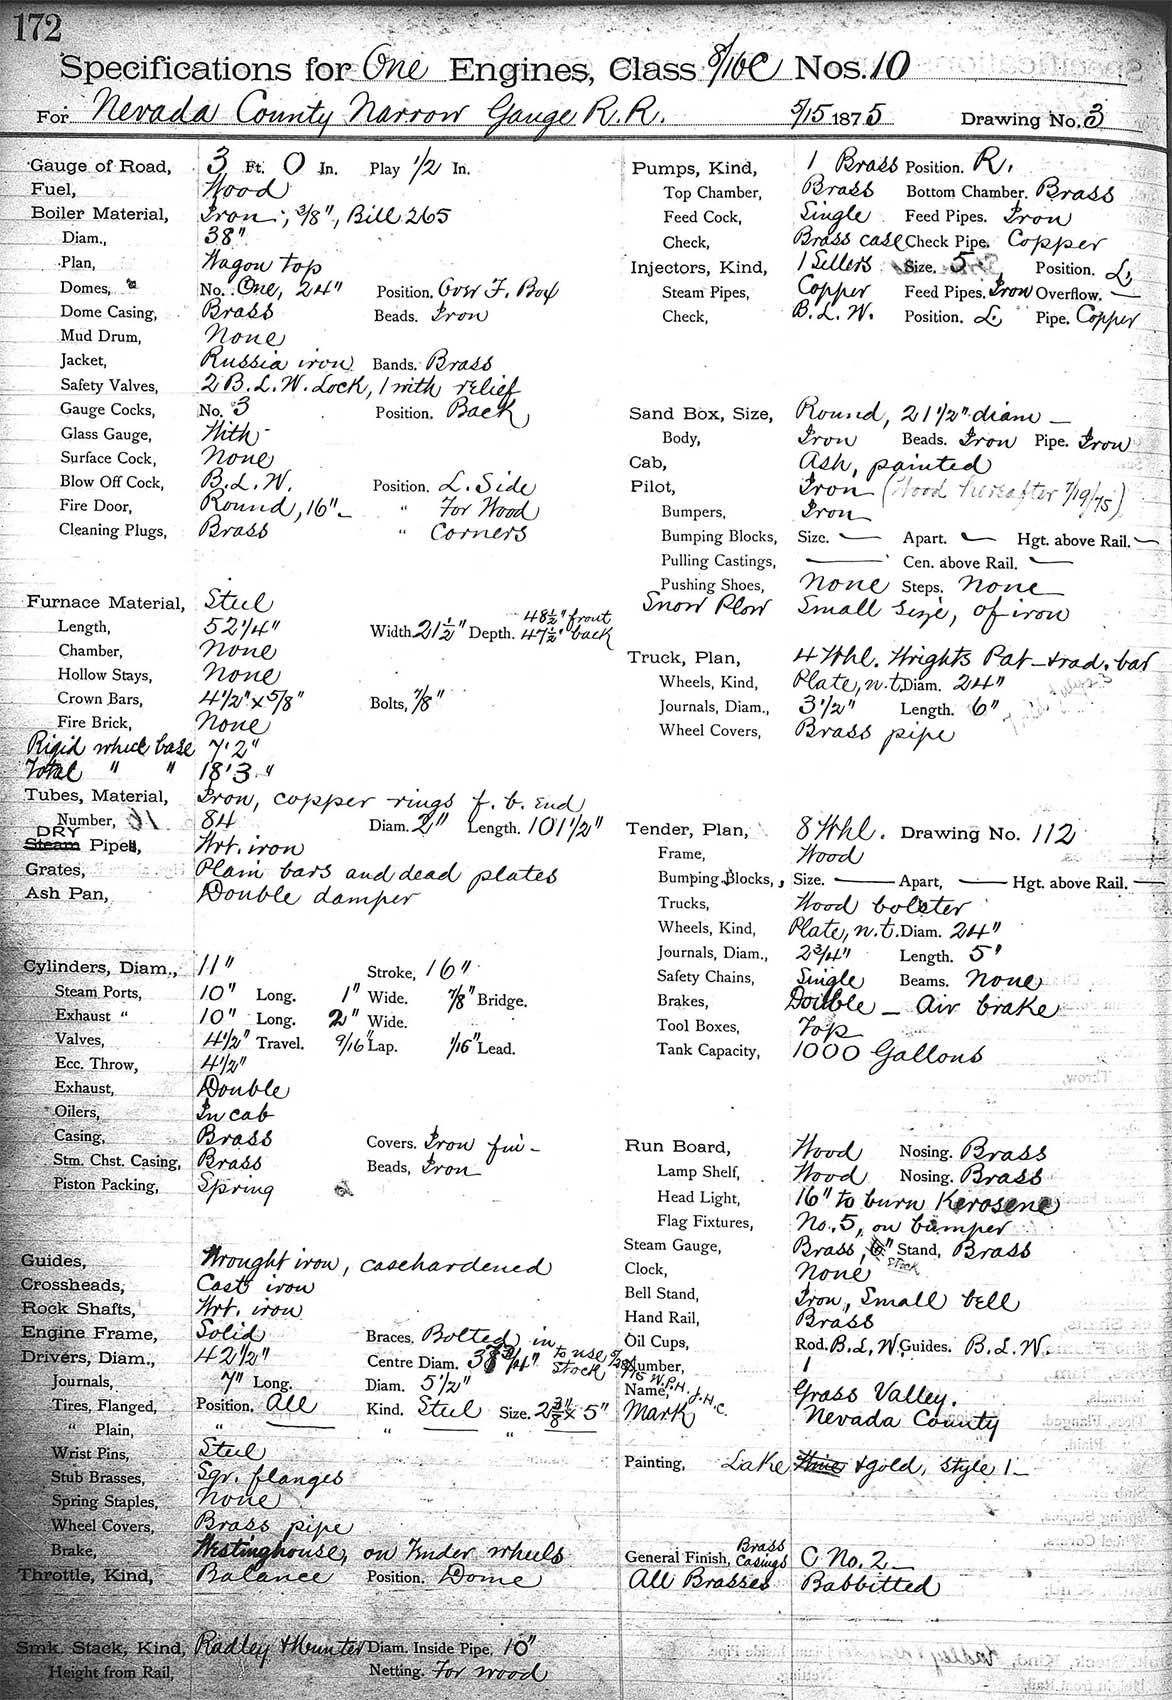 172
Specifications for One Engines, Class 8/16C Nos. 10
For Nevada County Narrow Gauge R.R. 5/15 1875 Drawing No. 3
Gauge of Road, 3 Ft. 0 In. Play 1/2 In.
Fuel, Wood
Boiler Material, Iron, 3/8", Bill 265
Diam., 38"
Plan, Wagon top
Domes, No. One, 24" Position. Over F. Box
Dome Casing, Brass Beads. Iron
Mud Drum, None
Jacket, Russia iron Bands. Brass
Safety Valves, 2 B.L.W. Lock, 1 with relief
Gauge Cocks, No. 3 Position. Back
Glass Gauge, With
Surface Cock, None
Blow Off Cock, B.L.W. Position. L. Side
Fire Door, Round, 16" " For Wood
Cleaning Plugs, Brass " Corners
Furnace Material, Steel
Length, 52 1/4" Width. 21 1/2" Depth. 48 1/2" front 47 1/2" back
Chamber, None
Hollow Stays, None
Crown Bars, 4 1/2" x 5/8" Bolts, 7/8"
Fire Brick, None
Rigid wheel base 7'2"
Total " " 18'3"
Tubes, Material, Iron, copper rings f. b. end
Number, 84 Diam. 2" Length. 101 1/2"
DRY
Steam Pipes, Wrt. iron
Grates, Plain bars and dead plates
Ash Pan, Double damper
Cylinders, Diam., 11" Stroke, 16"
Steam Ports, 10" Long. 1" Wide. 7/8" Bridge.
Exhaust " 10" Long. 2" Wide.
Valves, 4 1/2" Travel. 9/16" Lap. 1/16" Lead.
Ecc. Throw, 4 1/2"
Exhaust, Double
Oilers, In cab
Casing, Brass Covers. Iron fin -
Stm. Chst. Casing, Brass Beads, Iron
Piston Packing, Spring
Guides, Wrought iron, casehardened
Crossheads, Cast iron
Rock Shafts, Wrt. iron
Engine Frame, Solid Braces, Bolted in
Drivers, Diam., 42 1/2" Centre Diam. 38 3/4" to use stock
Journals, 7" Long. Diam. 5 1/2"
Tires, Flanged, Position. All Kind. Steel Size. 2 3/8" x 5"
" Plain, " " "
Wrist Pins, Steel
Stub Brasses, Sqr. flanges
Spring Staples, None
Wheel Covers, Brass pipe
Brake, Westinghouse, on Tender wheels
Throttle, Kind, Balance Position. Dome
Smk. Stack, Kind, Radley & Hunter Diam. Inside Pipe, 10"
Height from Rail, Netting. For wood
Pumps, Kind, 1 Brass Position. R.
Top Chamber, Brass Bottom Chamber. Brass
Feed Cock, Single Feed Pipes. Iron
Check, Brass case Check Pipe. Copper
Injectors, Kind, 1 Sellers Size. 5 Position. L.
Steam Pipes, Copper Feed Pipes. Iron Overflow. —
Check, B.L.W. Position. L. Pipe. Copper
Sand Box, Size, Round, 21 1/2" diam —
Body, Iron Beads. Iron Pipe. Iron
Cab, Ash, painted
Pilot, Iron (Wood hereafter 7/19/75)
Bumpers, Iron
Bumping Blocks, Size. — Apart. — Hgt. above Rail. —
Pulling Castings, — Cen. above Rail. —
Pushing Shoes, None Steps, None
Snow Plow Small size, of iron
Truck, Plan, 4 Whl. Wrights Pat - rad. bar
Wheels, Kind, Plate, n.t. Diam. 24"
Journals, Diam., 3 1/2" Length. 6"
Wheel Covers, Brass pipe
Tender, Plan, 8 Whl. Drawing No. 112
Frame, Wood
Bumping Blocks, Size. — Apart, — Hgt. above Rail. —
Trucks, Wood bolster
Wheels, Kind, Plate, n.t. Diam. 24"
Journals, Diam., 2 3/4" Length. 5"
Safety Chains, Single Beams. None
Brakes, Double — Air brake
Tool Boxes, Top
Tank Capacity, 1000 Gallons
Run Board, Wood Nosing. Brass
Lamp Shelf, Wood Nosing. Brass
Head Light, 16" to burn Kerosene
Flag Fixtures, No. 5, on bumper
Steam Gauge, Brass, Stand, Brass
stock
Clock, None
Bell Stand, Iron, Small bell
Hand Rail, Brass
Oil Cups, Rod. B.L.W. Guides. B.L.W.
Number, 1
Name, Grass Valley.
Mark Nevada County
Painting, Lake & gold, style 1 —
General Finish, Brass Casings C No. 2. —
All Brasses Babbitted